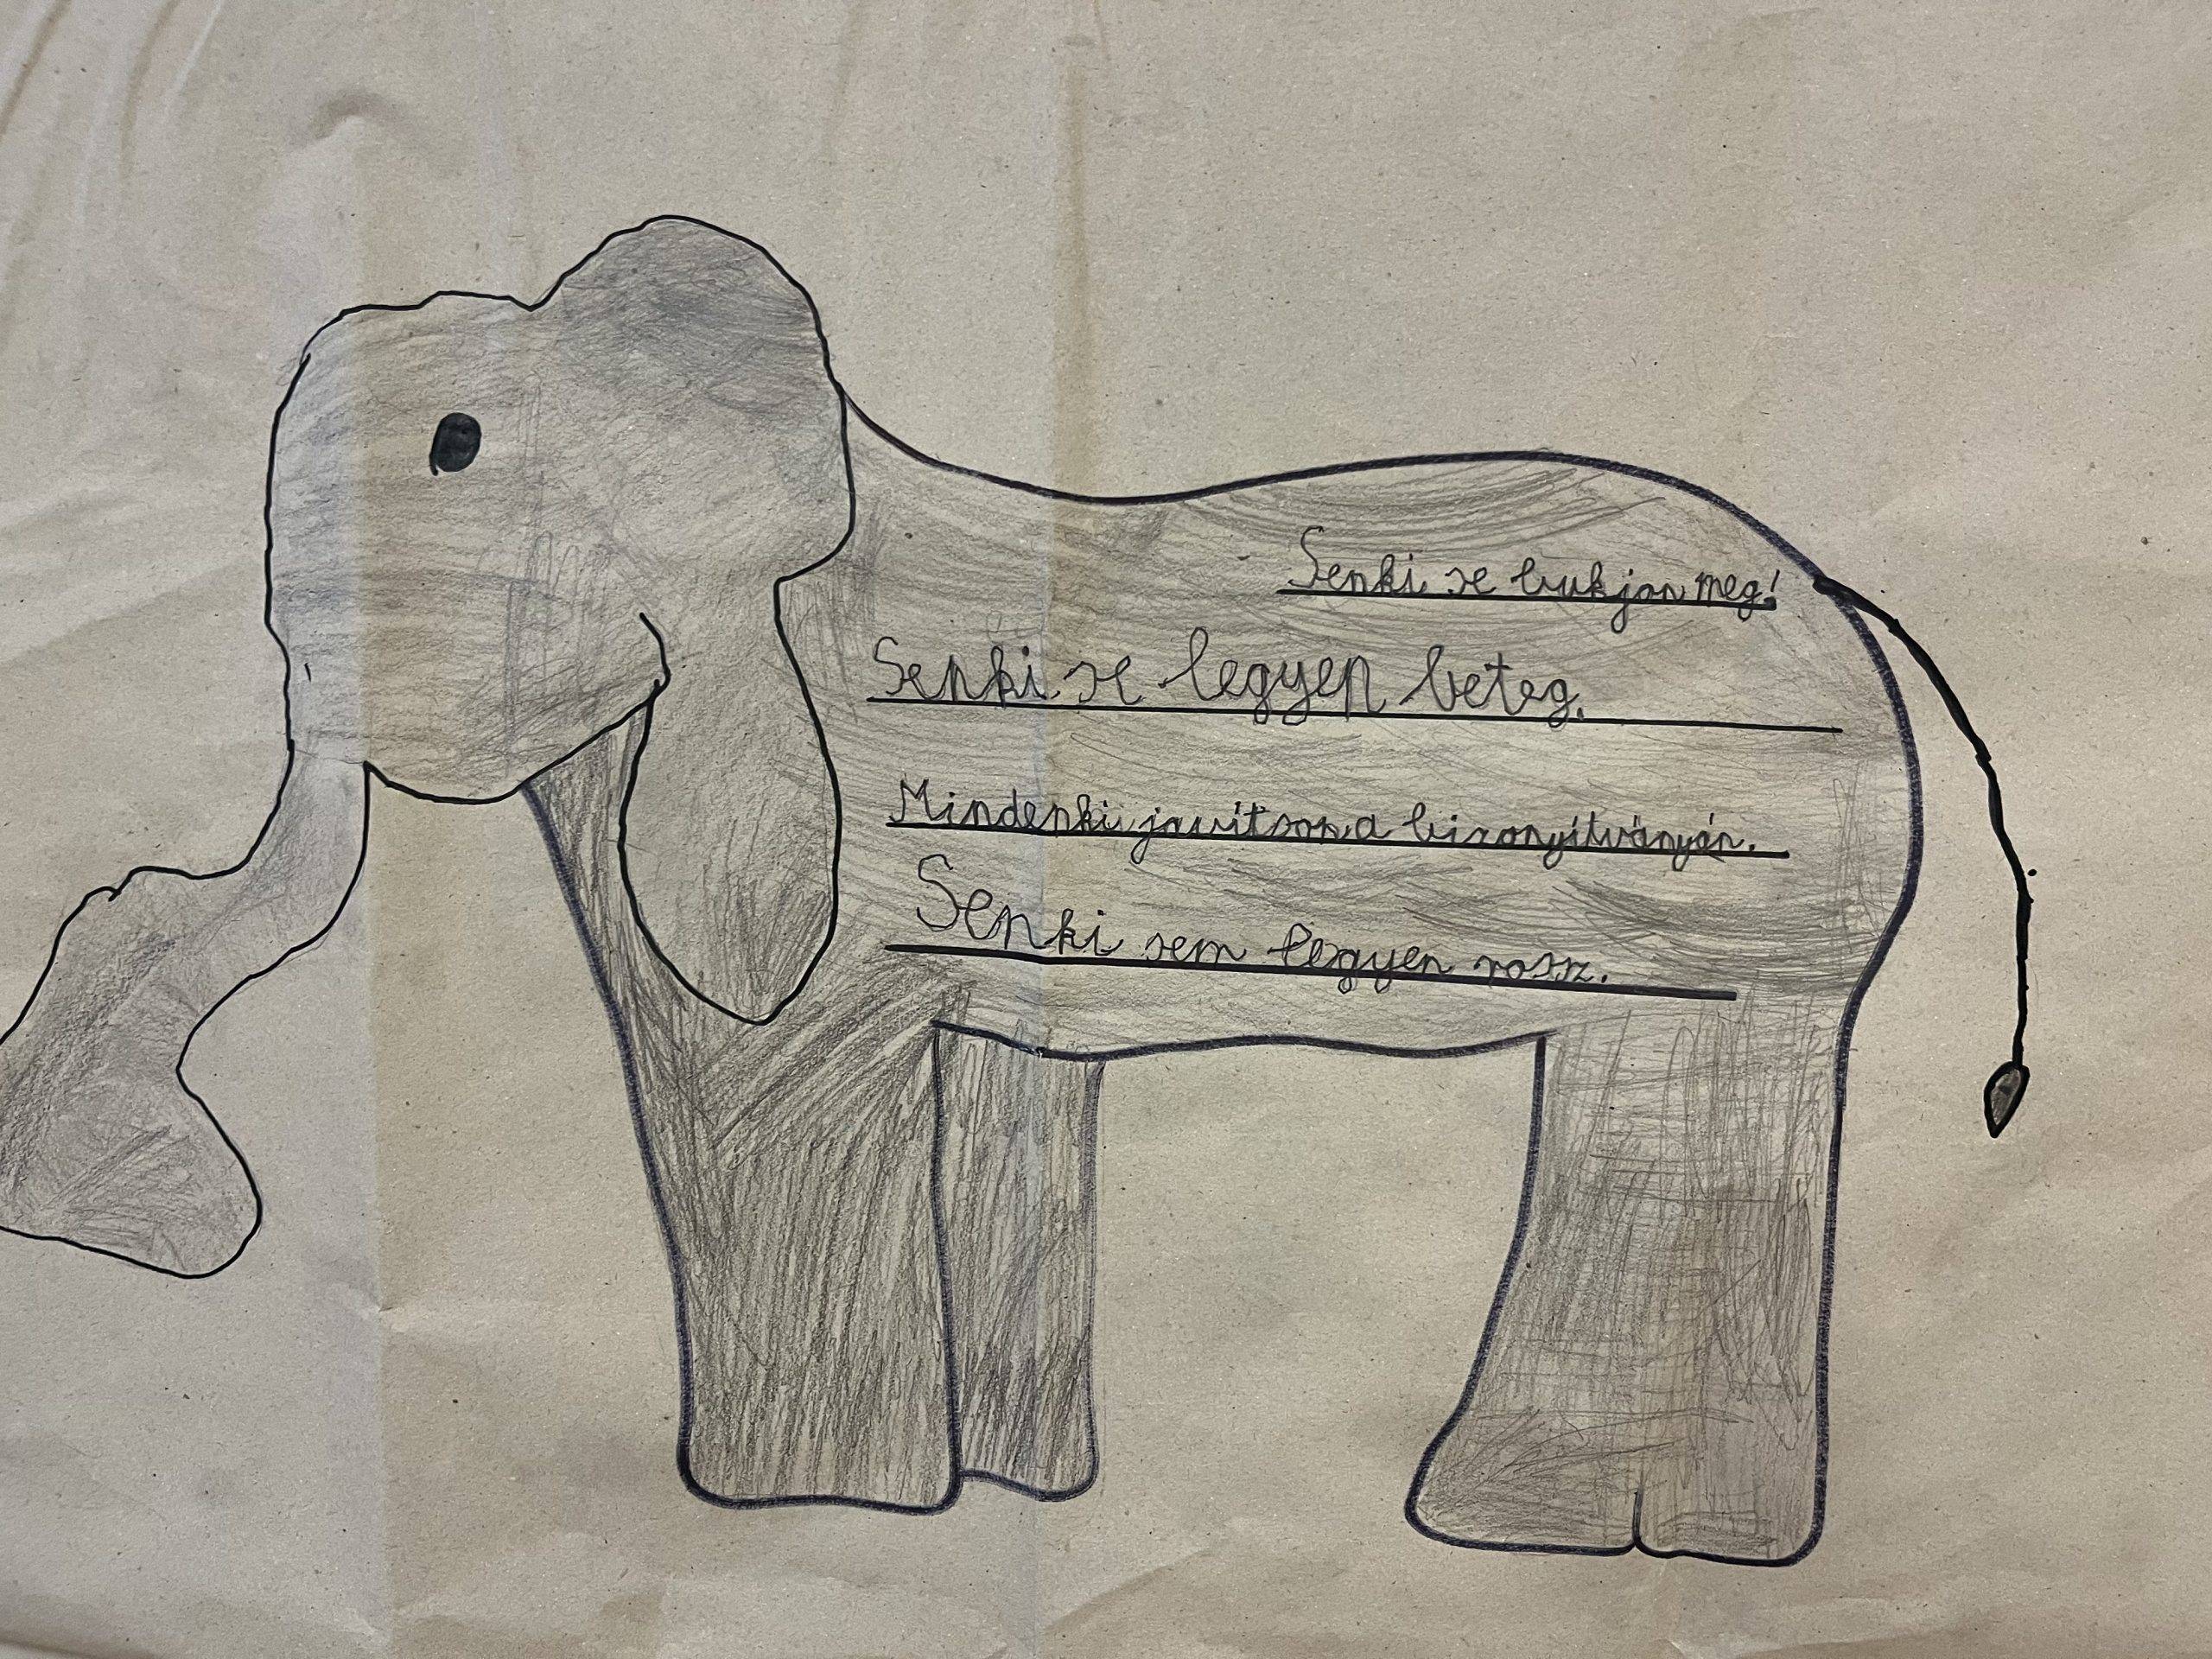 Senki se bukjon meg!
Senki se legyen beteg.
Mindenki javítson a bizonyítványán.
Senki sem legyen rossz.